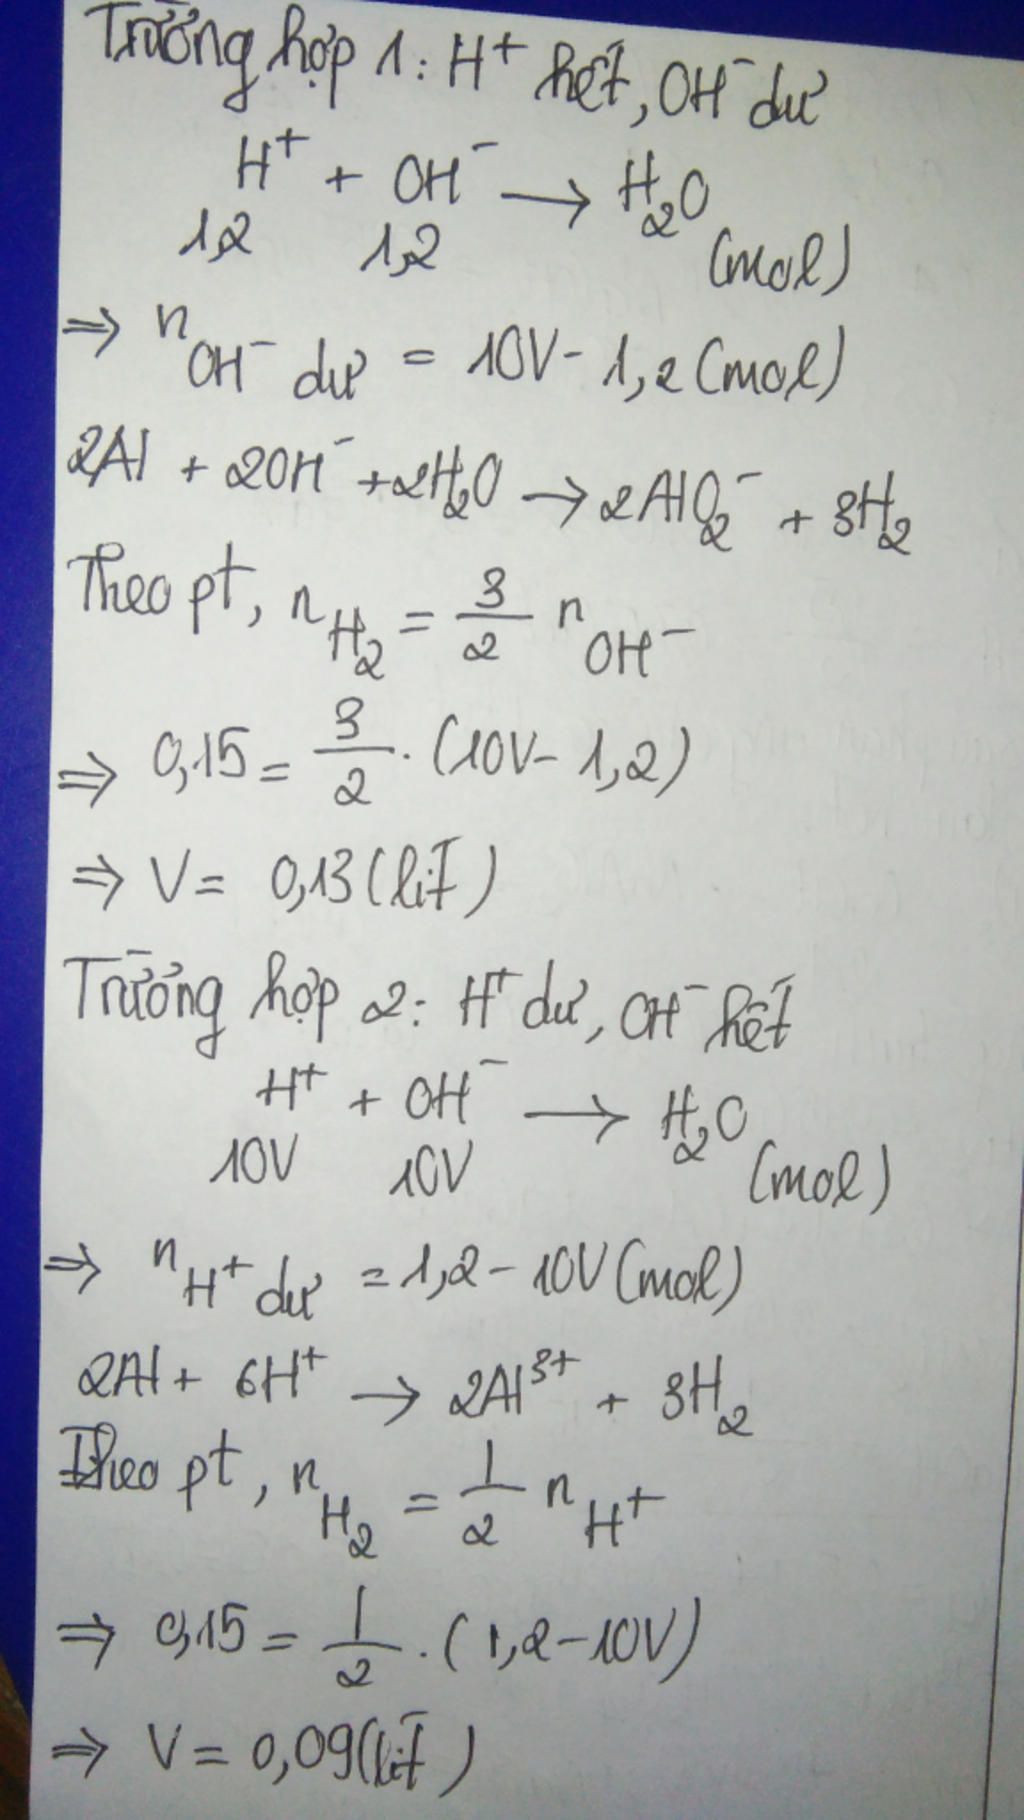 Trường hợp 1: H⁺ hết, OH⁻ dư
H⁺ + OH⁻ → H₂O
1,2 1,2 (mol)
⇒ n OH⁻ dư = 10V - 1,2 (mol)
2Al + 2OH⁻ + 2H₂O → 2AlO₂⁻ + 3H₂
Theo pt, n H₂ = 3/2 n OH⁻
⇒ 0,15 = 3/2 . (10V - 1,2)
⇒ V = 0,13 (lít)
Trường hợp 2: H⁺ dư, OH⁻ hết
H⁺ + OH⁻ → H₂O
10V 10V (mol)
⇒ n H⁺ dư = 1,2 - 10V (mol)
2Al + 6H⁺ → 2Al³⁺ + 3H₂
Theo pt, n H₂ = 1/2 n H⁺
⇒ 0,15 = 1/2 . (1,2 - 10V)
⇒ V = 0,09 (lít)